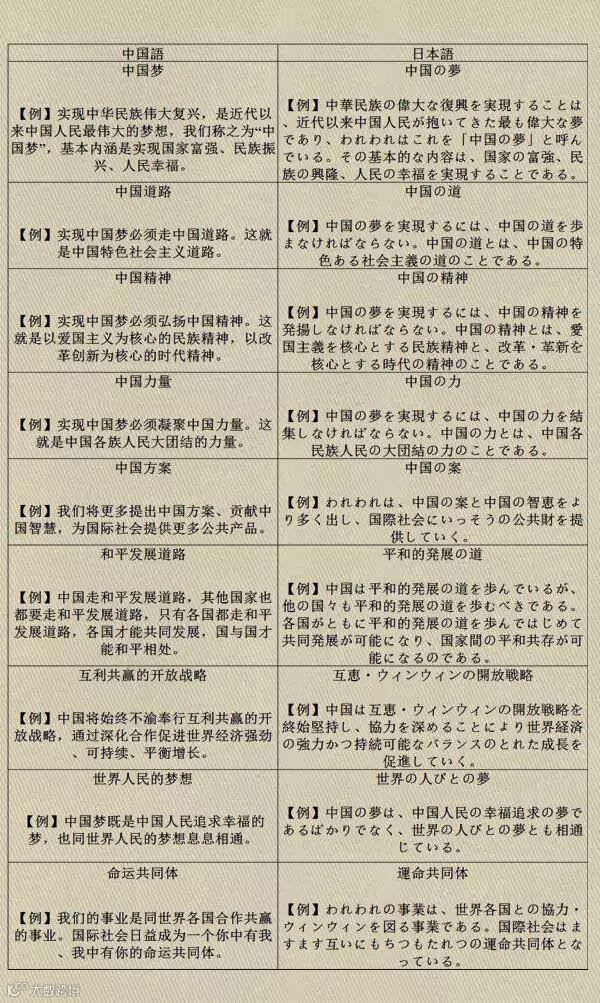 中国語
日本語
中国梦
【例】实现中华民族伟大复兴，是近代以
来中国人民最伟大的梦想，我们称之为“中
国梦”，基本内涵是实现国家富强、民族振
兴、人民幸福。
中国の夢
【例】中華民族の偉大な復興を実現することは
、近代以来中国人民が抱いてきた最も偉大な夢
であり、われわれはこれを「中国の夢」と呼ん
でいる。その基本的な内容は、国家の富強、民
族の興隆、人民の幸福を実現することである。
中国道路
【例】实现中国梦必须走中国道路。这就
是中国特色社会主义道路。
中国の道
【例】中国の夢を実現するには、中国の道を歩
まなければならない。中国の道とは、中国の特
色ある社会主義の道のことである。
中国精神
【例】实现中国梦必须弘扬中国精神。这
就是以爱国主义为核心的民族精神，以改
革创新为核心的时代精神。
中国の精神
【例】中国の夢を実現するには、中国の精神を
発揚しなければならない。中国の精神とは、愛
国主義を核心とする民族精神と、改革・革新を
核心とする時代の精神のことである。
中国力量
【例】实现中国梦必须凝聚中国力量。这
就是中国各族人民大团结的力量。
中国の力
【例】中国の夢を実現するには、中国の力を結
集しなければならない。中国の力とは、中国各
民族人民の大団結の力のことである。
中国方案
【例】我们将更多提出中国方案、贡献中
国智慧，为国际社会提供更多公共产品。
中国の案
【例】われわれは、中国の案と中国の智恵をよ
り多く出し、国際社会にいっそうの公共財を提
供していく。
和平发展道路
【例】中国走和平发展道路，其他国家也
都要走和平发展道路，只有各国都走和平
发展道路，各国才能共同发展，国与国才
能和平相处。
平和的発展の道
【例】中国は平和的発展の道を歩んでいるが、
他の国々も平和的発展の道を歩むべきである。
各国がともに平和的発展の道を歩んではじめて
共同発展が可能になり、国家間の平和共存が可
能になるのである。
互利共赢的开放战略
【例】中国将始终不渝奉行互利共赢的开
放战略，通过深化合作促进世界经济强劲
、可持续、平衡增长。
互恵・ウィンウィンの開放戦略
【例】中国は互恵・ウィンウィンの開放戦略を
終始堅持し、協力を深めることにより世界経済
の強力かつ持続可能なバランスのとれた成長を
促進していく。
世界人民的梦想
【例】中国梦既是中国人民追求幸福的
梦，也同世界人民的梦想息息相通。
世界の人びとの夢
【例】中国の夢は、中国人民の幸福追求の夢で
あるばかりでなく、世界の人びとの夢とも相通
じている。
命运共同体
【例】我们的事业是同世界各国合作共赢
的事业。国际社会日益成为一个你中有我
、我中有你的命运共同体。
運命共同体
【例】われわれの事業は、世界各国との協力・
ウィンウィンを図る事業である。国際社会はま
すます互いにもちつもたれつの運命共同体とな
っている。
大数跨境